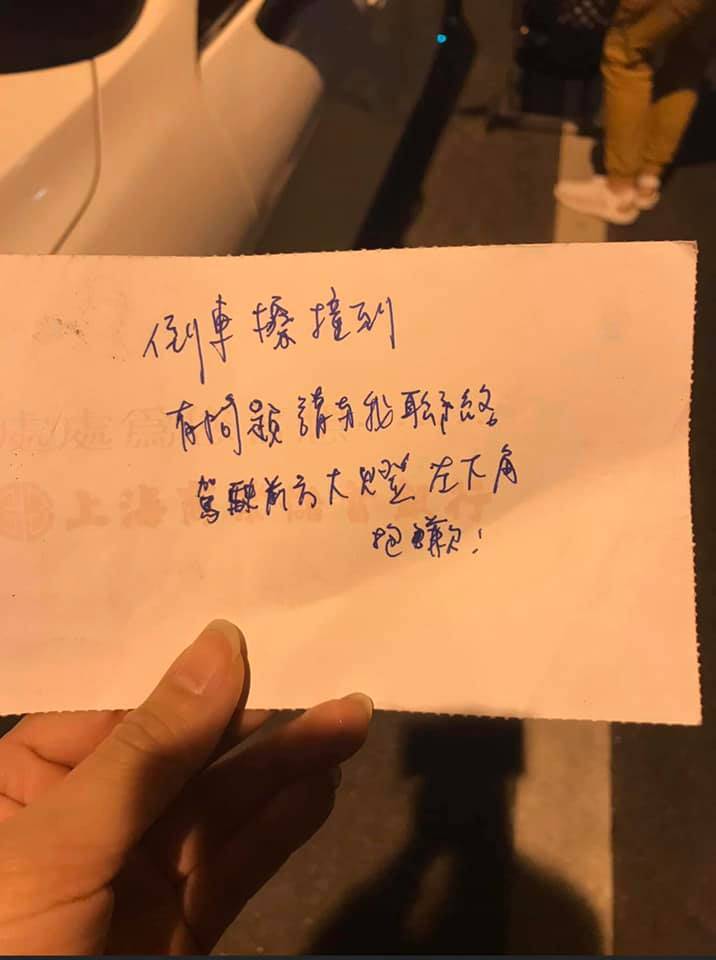 倒車擦撞到
有問題請與我聯絡
駕駛前方大燈左下角
抱歉!
上海商業儲蓄銀行